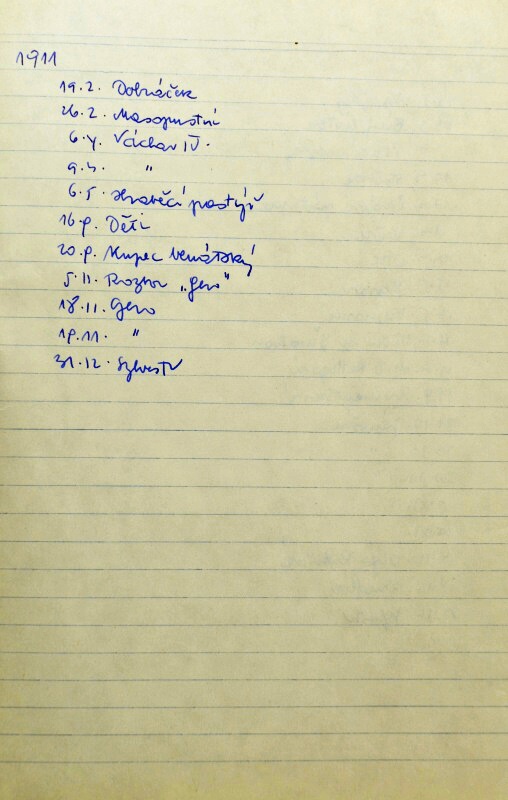 1911
19.2. Dobráček
26.2. Masopustní
6.4. Václav IV.
9.4. "
6.5. pastýř
16.9. Děti
20.9. Kupec benátský
5.11. Rozbor „Gero"
18.11. Gero
19.11. "
31.12. Sylvestr